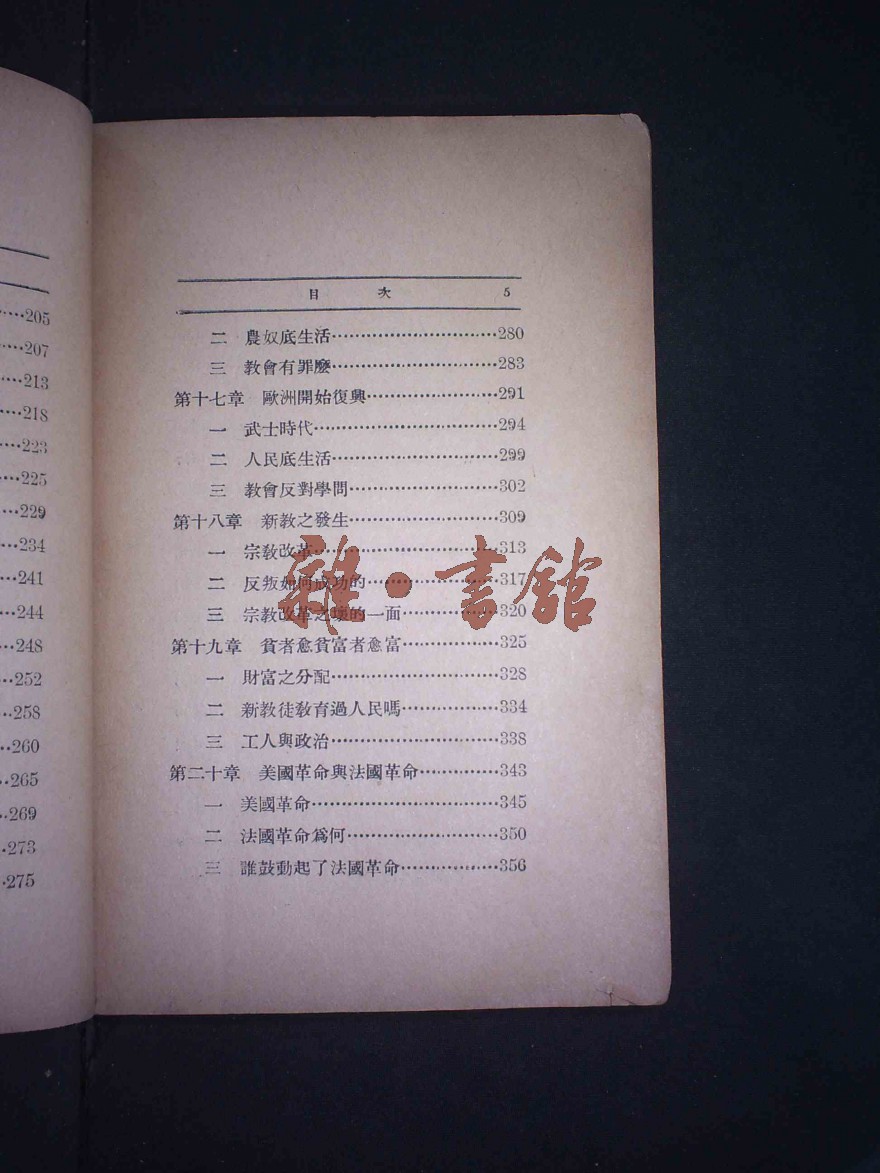 205
207
213
218
223
225
229
234
241
244
248
252
258
260
265
269
273
275
目次 5
二 農奴底生活……………………280
三 教會有罪麼……………………283
第十七章 歐洲開始復興……………………291
一 武士時代……………………294
二 人民底生活……………………299
三 教會反對學問……………………302
第十八章 新教之發生……………………309
一 宗教改革……………………313
二 反叛如何成功的……………………317
三 宗教改革之壞的一面……………………320
第十九章 貧者愈貧富者愈富……………………325
一 財富之分配……………………328
二 新教徒教育過人民嗎……………………334
三 工人與政治……………………338
第二十章 美國革命與法國革命……………………343
一 美國革命……………………345
二 法國革命爲何……………………350
三 誰鼓動起了法國革命……………………356
雜·書館